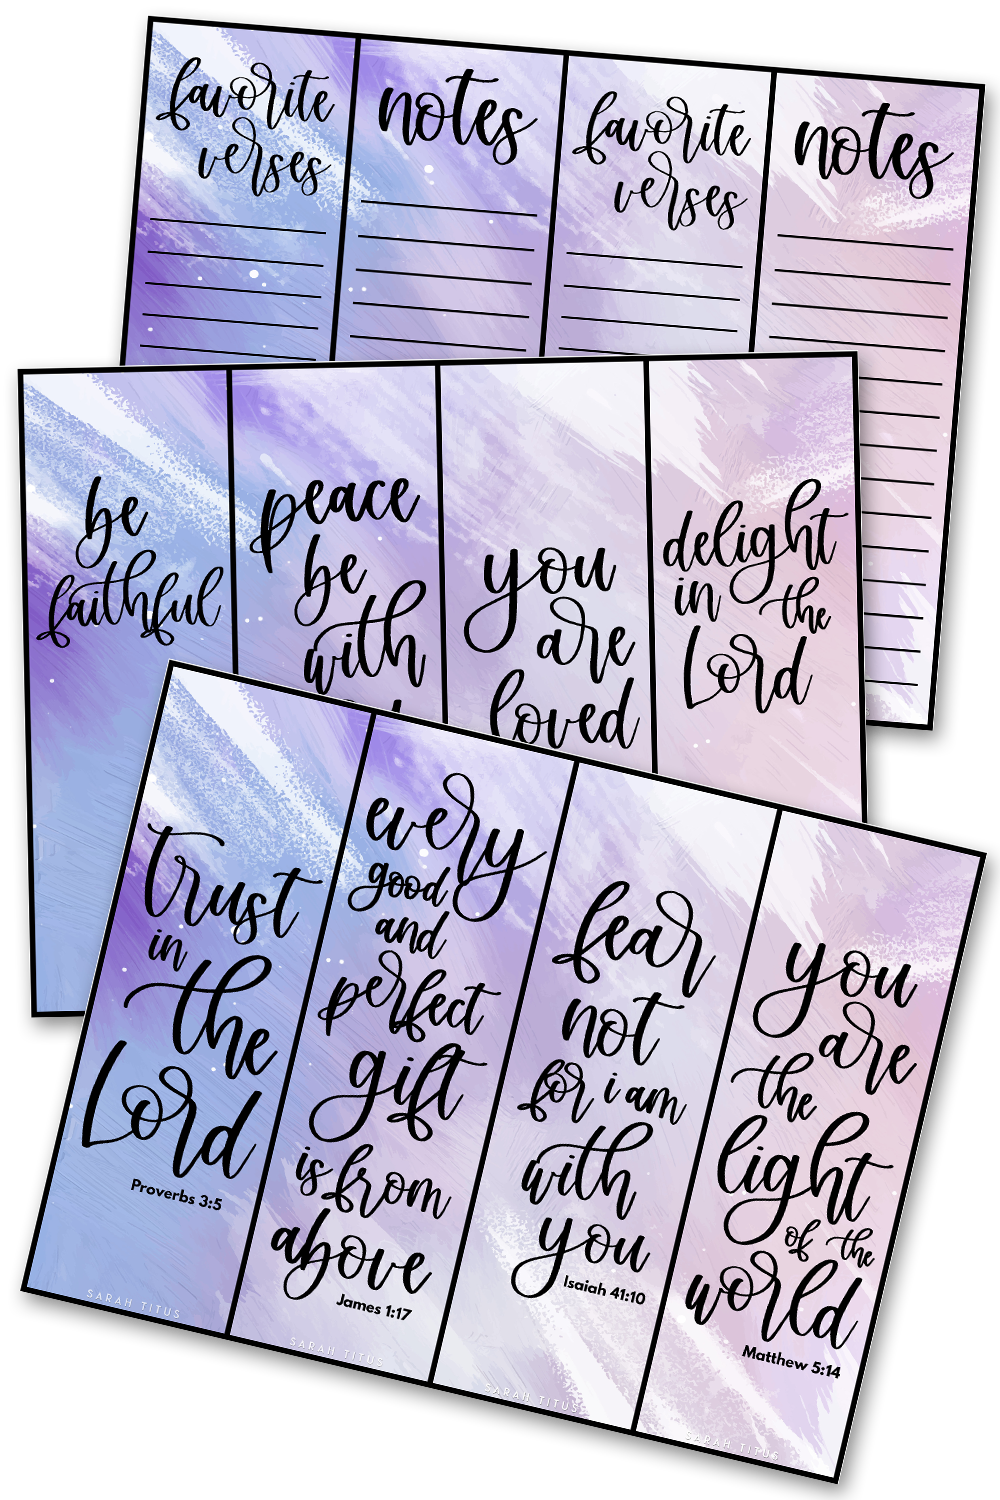 favorite
verses
notes
favorite
verses
notes
be
faithful
peace
be
with
you
are
loved
delight
in the
Lord
trust
in
the
Lord
Proverbs 3:5
SARAH TITUS
every
good
and
perfect
gift
is from
above
James 1:17
SARAH TITUS
fear
not
for i am
with
you
Isaiah 41:10
SARAH TITUS
you
are
the
light
of the
world
Matthew 5:14
SARAH TITUS